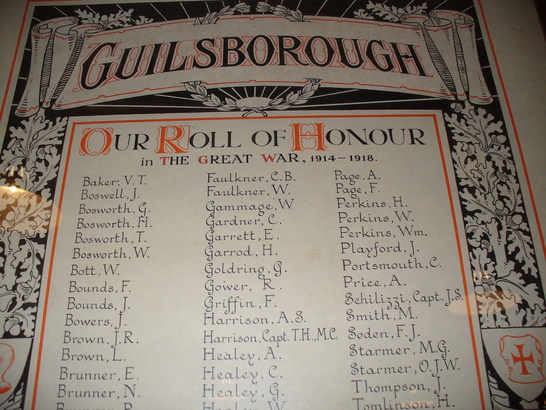 GUILSBOROUGH
OUR ROLL OF HONOUR
in THE GREAT WAR, 1914-1918.
Baker, V.T.
Boswell, J.
Bosworth, G.
Bosworth, H.
Bosworth, T.
Bosworth, W.
Bott, W.
Bounds, F.
Bounds, J.
Bowers, J.
Brown, J.R.
Brown, L.
Brunner, E.
Brunner, N.
Faulkner, C.B.
Faulkner, W.
Gammage, W
Gardner, C.
Garrett, E.
Garrod, H.
Goldring, G.
Gower, R.
Griffin, F.
Harrison, A.S.
Harrison, Capt. T.H., M.C.
Healey, A.
Healey, C.
Healey, G.
Healey, W.
Page, A.
Page, F.
Perkins, H.
Perkins, W.
Perkins, Wm.
Playford, J.
Portsmouth, C.
Price, A.
Schilizzi, Capt. J.S.
Smith, M.
Soden, F.J.
Starmer, M.G.
Starmer, O.J.W.
Thompson, J.
Tomlinson, H.